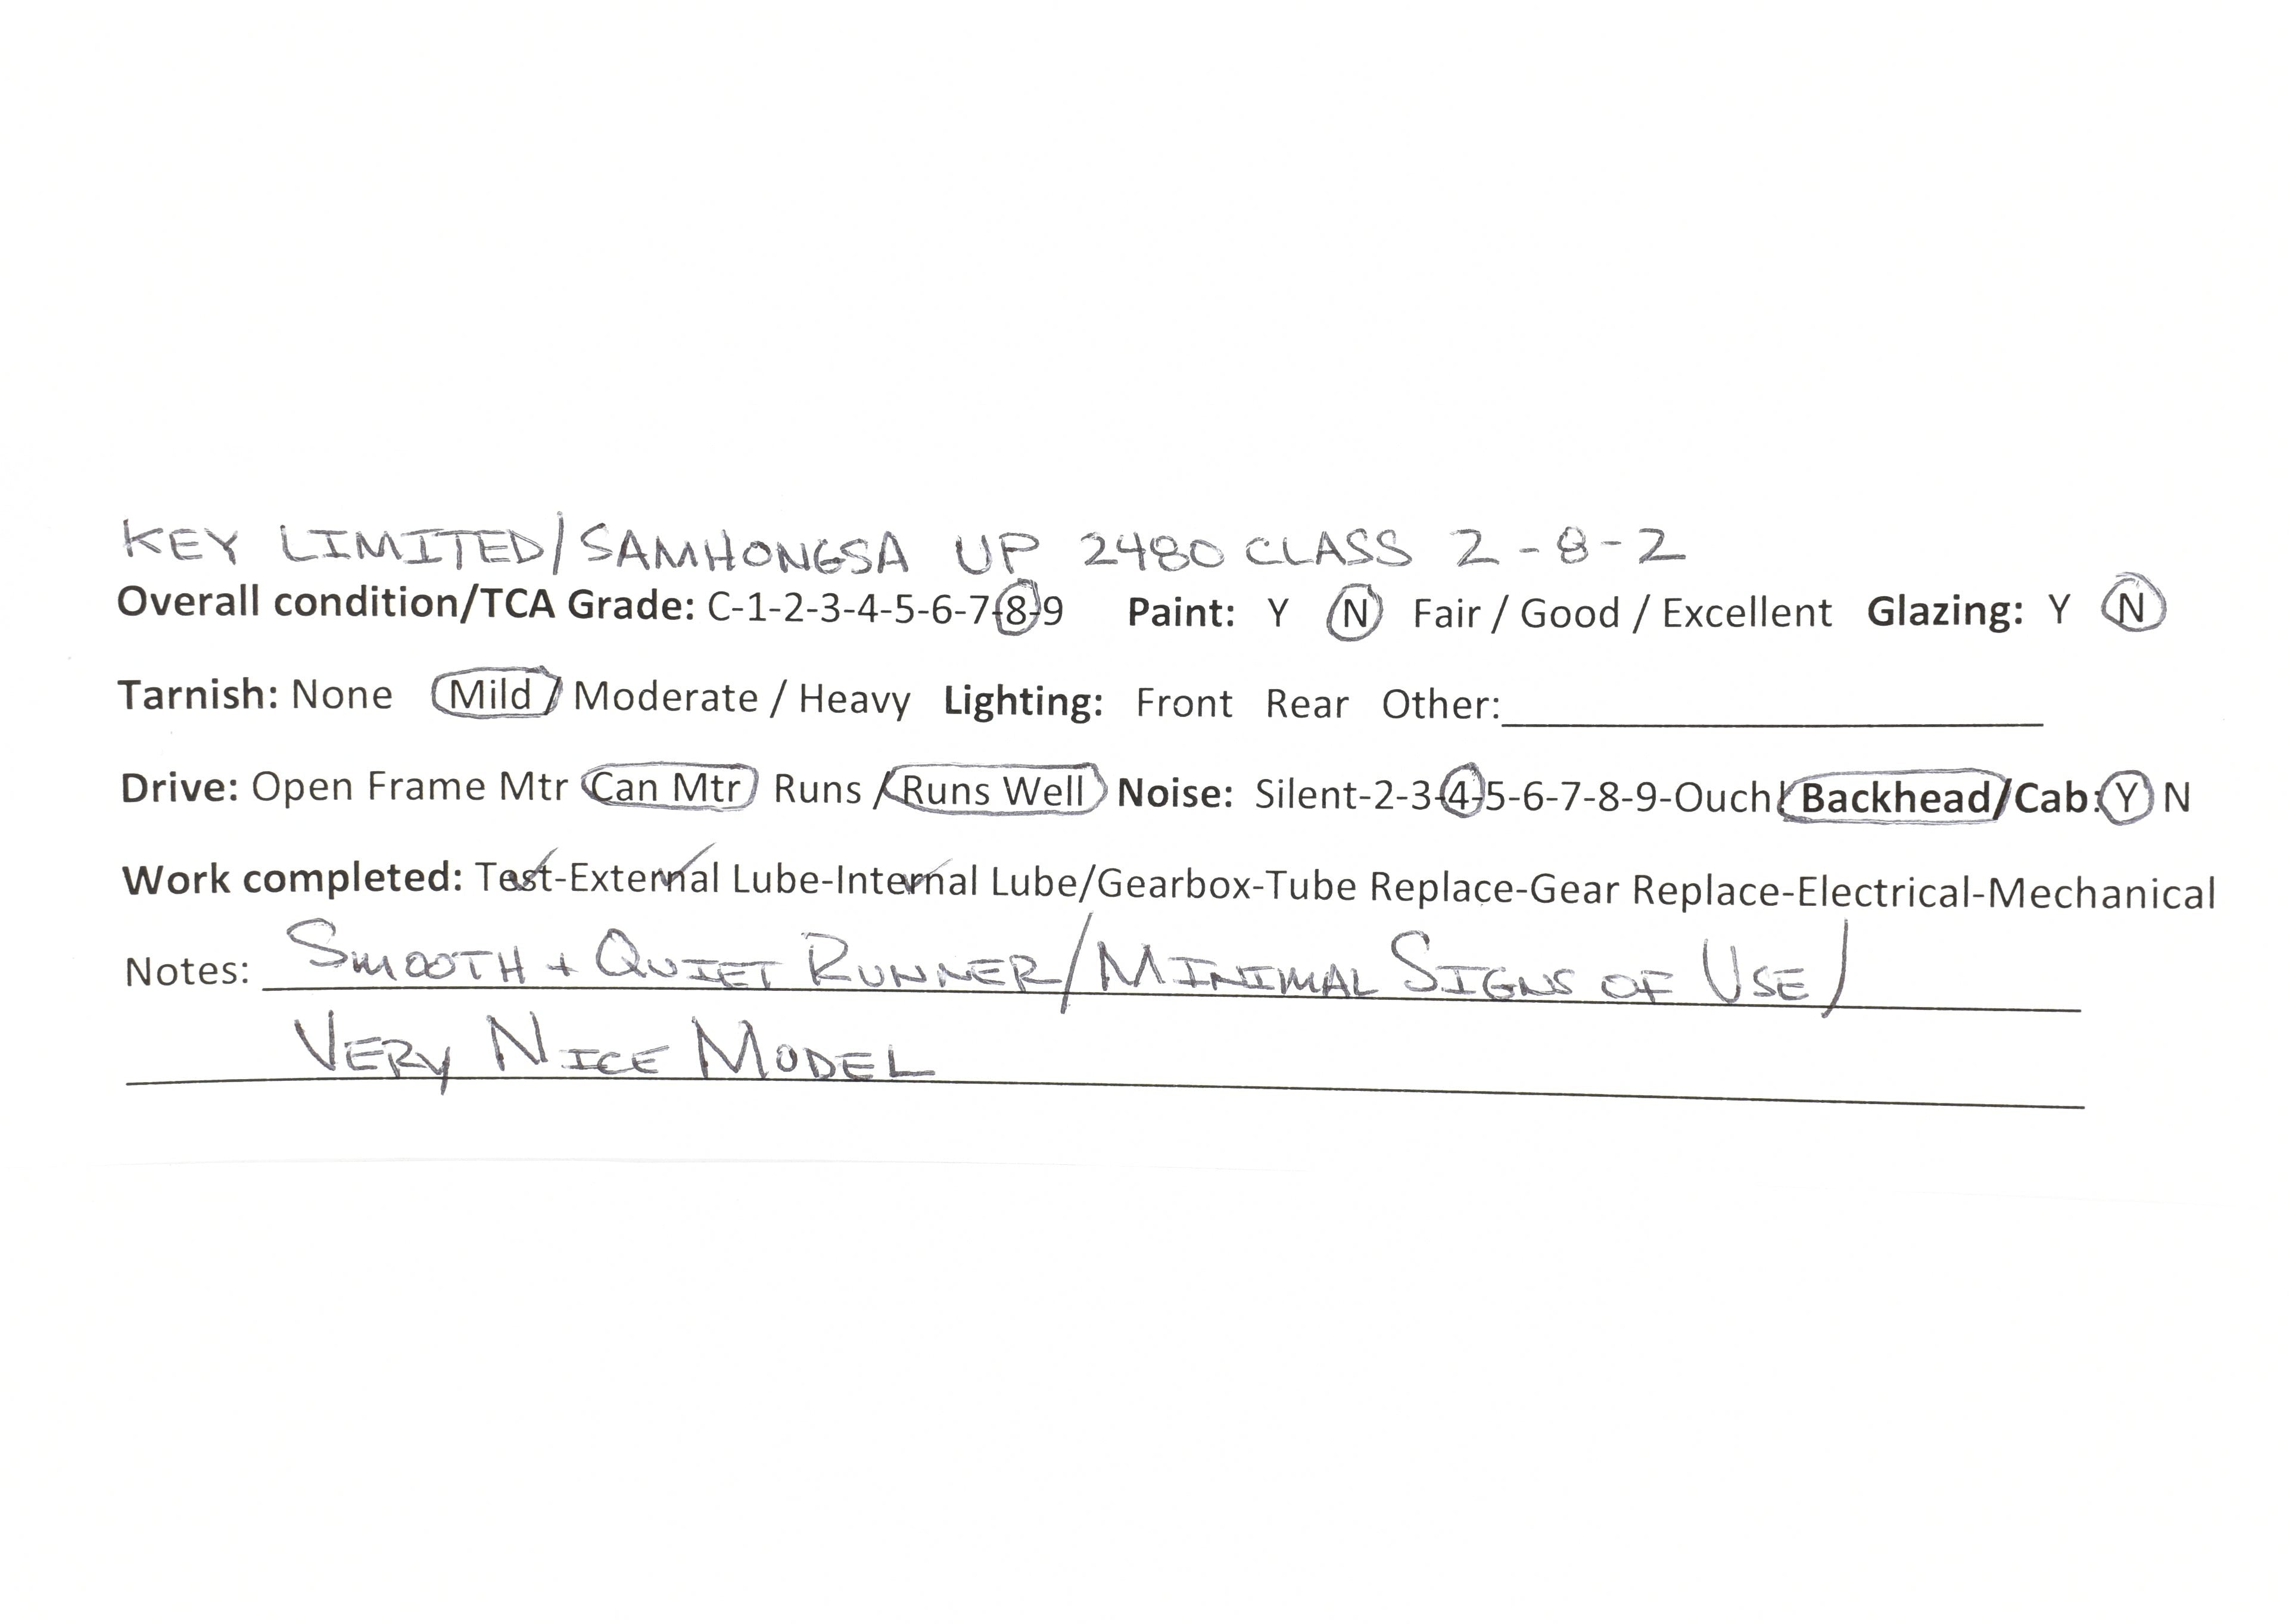 KEY LIMITED/SAMHONGSA UP 2480 CLASS 2-8-2
Overall condition/TCA Grade: C-1-2-3-4-5-6-7-8-9 Paint: Y N Fair / Good / Excellent Glazing: Y N
Tarnish: None Mild / Moderate / Heavy Lighting: Front Rear Other:
Drive: Open Frame Mtr Can Mtr Runs / Runs Well Noise: Silent-2-3-4-5-6-7-8-9-Ouch Backhead/Cab: Y N
Work completed: Test-External Lube-Internal Lube/Gearbox-Tube Replace-Gear Replace-Electrical-Mechanical
Notes: SMOOTH + QUIET RUNNER/MINIMAL SIGNS OF USE/
VERY NICE MODEL